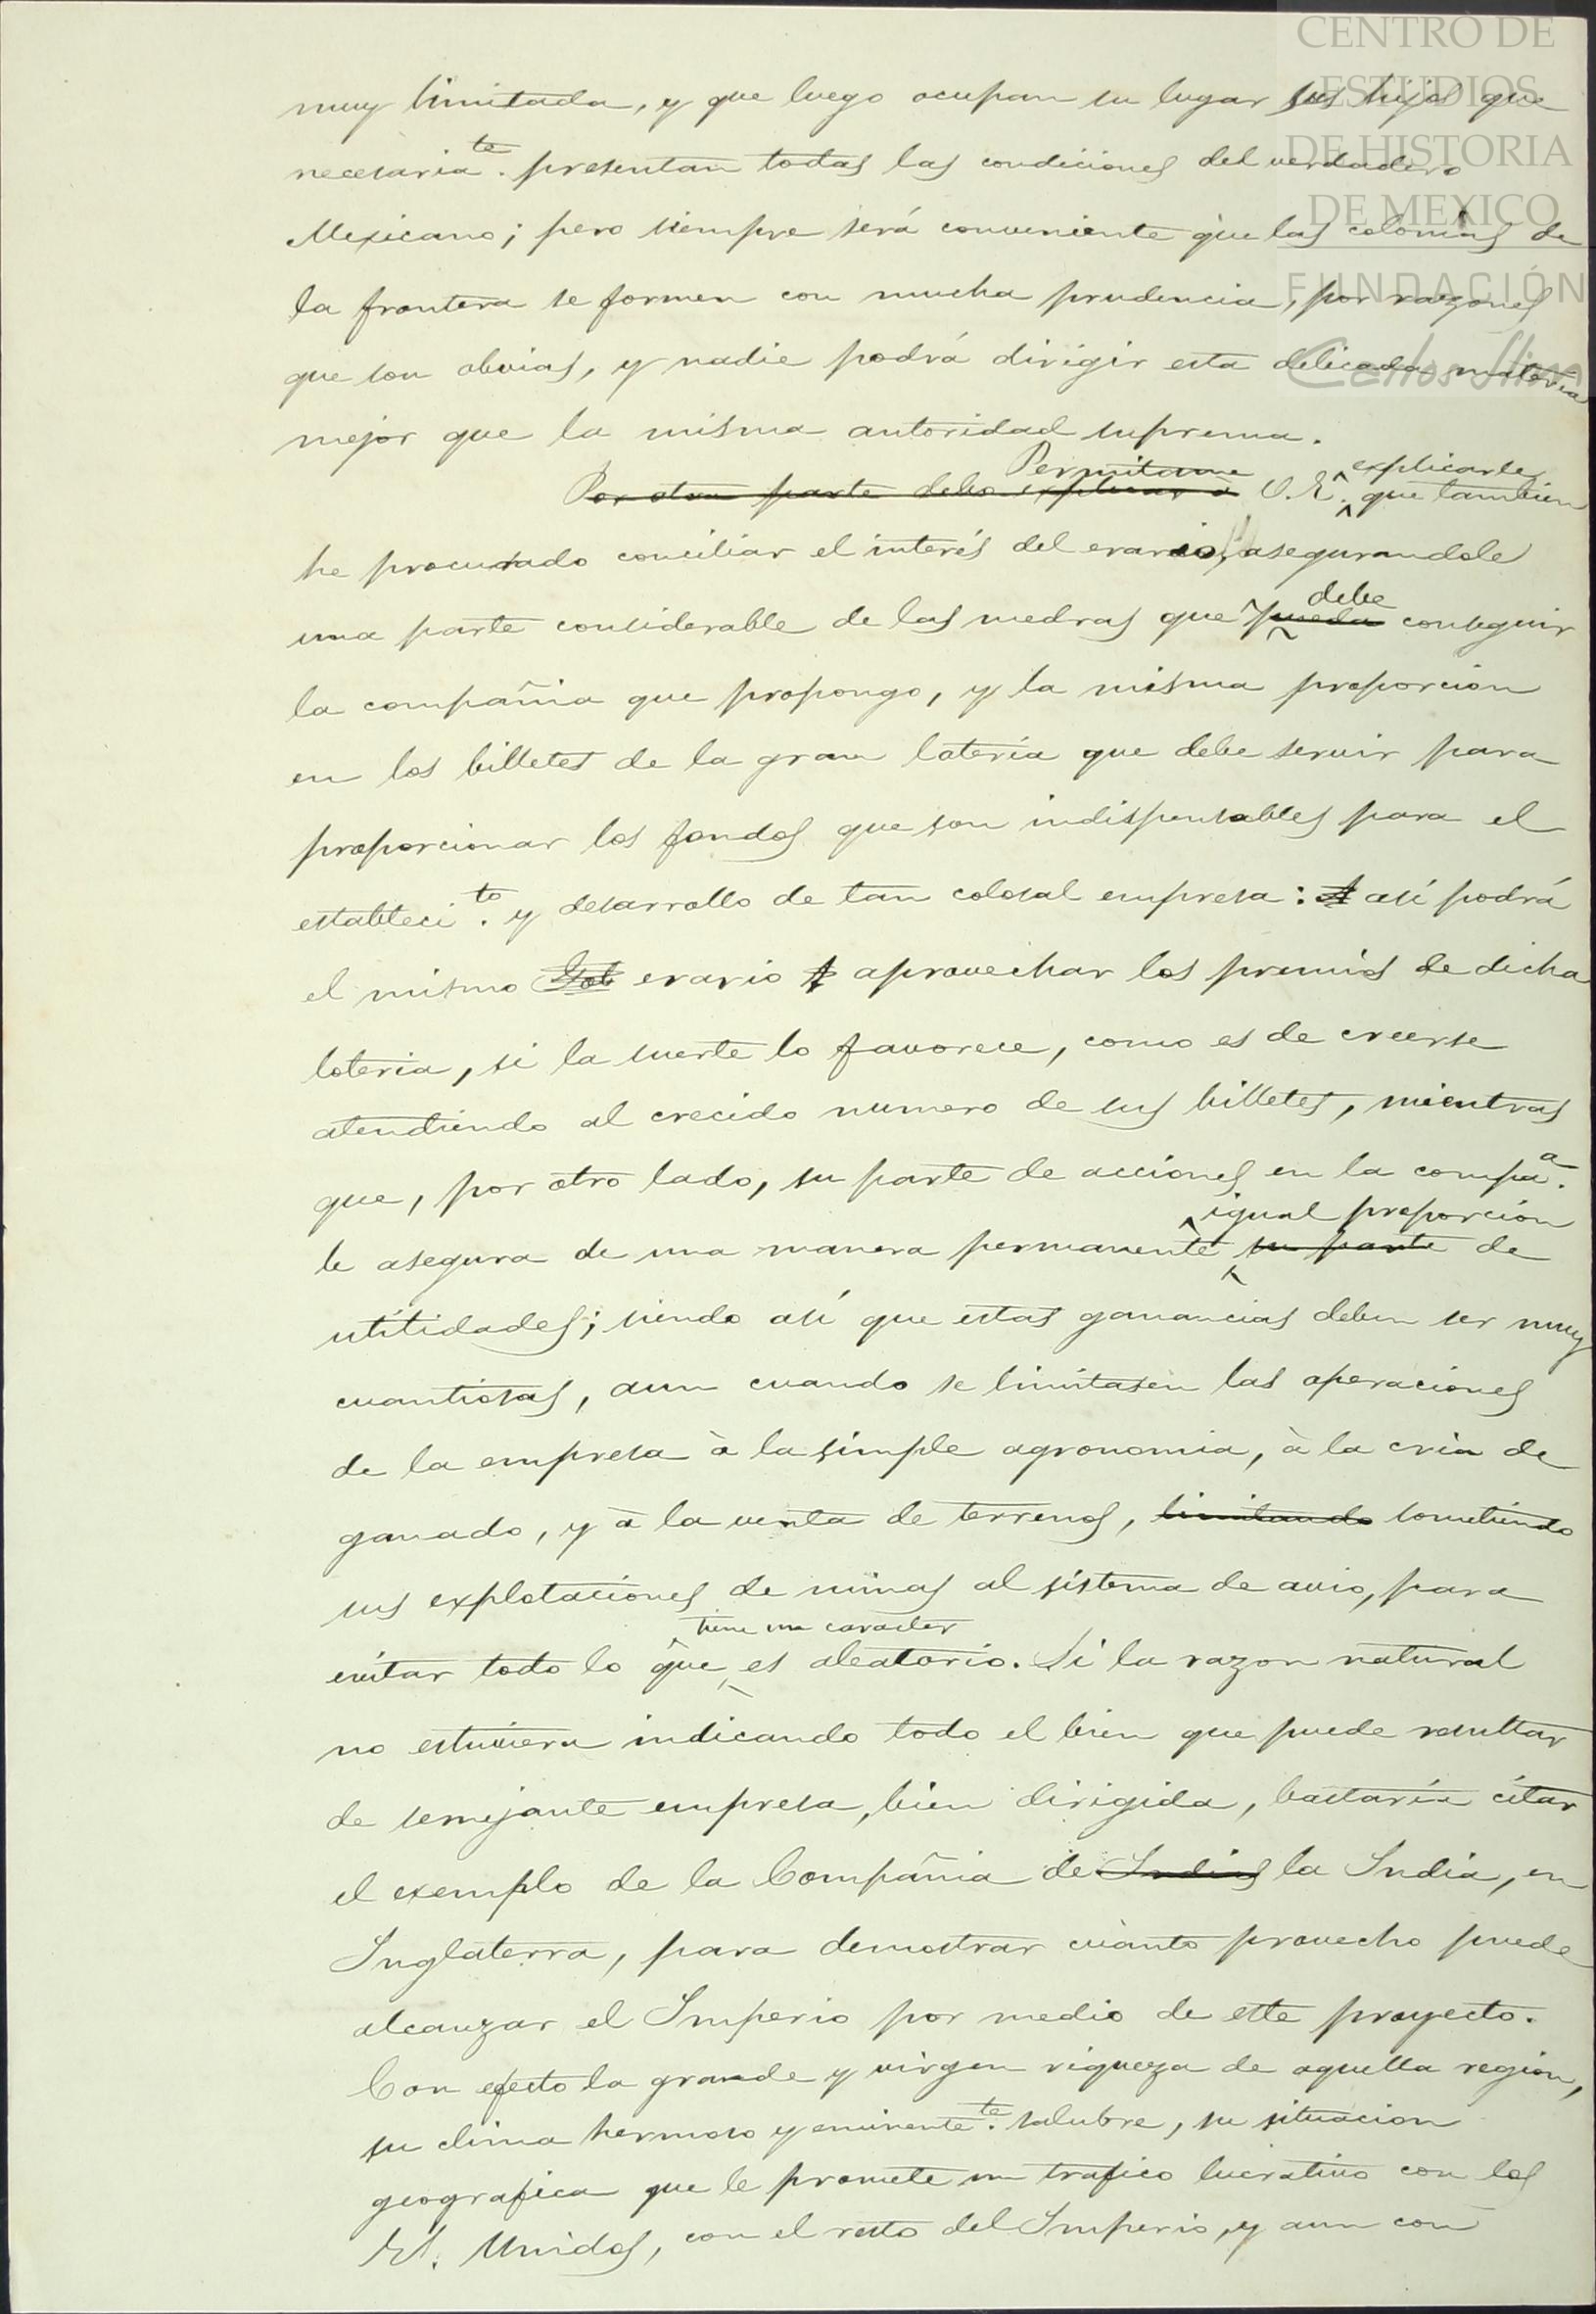 CENTRO DE
ESTUDIOS
DE HISTORIA
DE MEXICO
FUNDACIÓN
Carlos Slim
muy limitada, y que luego ocupan su lugar sus hijos que
necesaria.te presentan todas las condiciones del verdadero
Mexicano; pero siempre será conveniente que las colonias de
la frontera se formen con mucha prudencia, por razones
que son obvias, y nadie podrá dirigir esta delicada materia
mejor que la misma autoridad suprema.
Permitame explicarle
Por otra parte debo explicar à V.E. que tambien
he procurado conciliar el interés del erario, asegurandole
debe
una parte considerable de las medras que pueda conseguir
la compañia que propongo, y la misma proporcion
en los billetes de la gran lotería que debe servir para
proporcionar los fondos que son indispensables para el
estableci.to y desarrollo de tan colosal empresa: A asi podrá
el mismo Gob erario aprovechar los premios de dicha
loteria, si la suerte lo favorece, como es de creerse
atendiendo al crecido numero de sus billetes, mientras
que, por otro lado, su parte de acciones en la compa.a
igual proporción
le asegura de una manera permanente su parte de
utilidades; siendo asi que estas ganancias deben ser muy
cuantiosas, aun cuando se limitasen las operaciones
de la empresa à la simple agronomia, à la cria de
ganado, y à la venta de terrenos, limitando sometiendo
sus explotaciones de minas al sistema de avio, para
tiene un caracter
evitar todo lo que es aleatorio. Si la razon natural
no estuviera indicando todo el bien que puede resultar
de semejante empresa, bien dirigida, bastaría citar
el exemplo de la Compañia de Indias la India, en
Inglaterra, para demostrar cuànto provecho puede
alcanzar el Imperio por medio de este proyecto.
Con efecto la grande y virgen riqueza de aquella region,
su clima hermoso y eminente.te salubre, su situacion
geografica que le promete un trafico lucrativo con los
EE. Unidos, con el resto del Imperio, y aun con